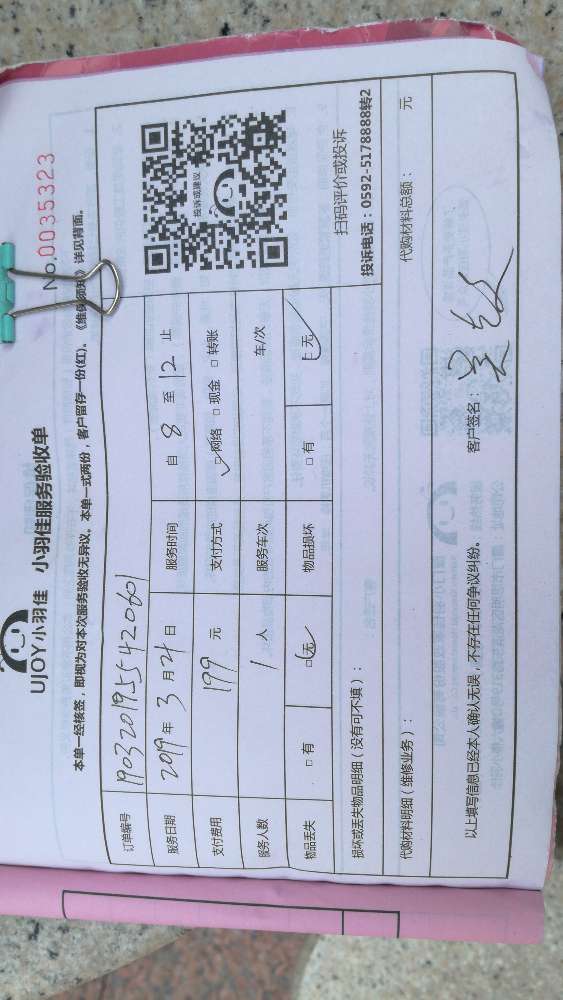 UJOY小羽佳 小羽佳服务验收单
No.0035323
本单一经核签，即视为对本次服务验收无异议。本单一式两份，客户留存一份(红)。《维保须知》详见背面。
订单编号 1903201955420601
服务日期 2019年3月21日 服务时间 自 8 至 12 止
支付费用 199 元 支付方式 □网络 □现金 □转账
服务人数 1 人 服务车次 车/次
物品丢失 □有 □无 物品损坏 □有 □无
投诉或建议
扫码评价或投诉
投诉电话：0592-5178888转2
损坏或丢失物品明细（没有可不填）：
代购材料明细（维修业务）： 代购材料总额： 元
以上填写信息已经本人确认无误，不存在任何争议纠纷。 客户签名：